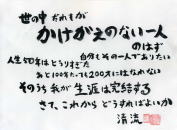 世の中だれもが
かけがえのない一人
のはず
自分もその一人でありたい
人生50年はとうりすぎ
あと100年たても200才にはなれない
そのうち我が生涯は完結する
さて、これから どうすればよいか
清流